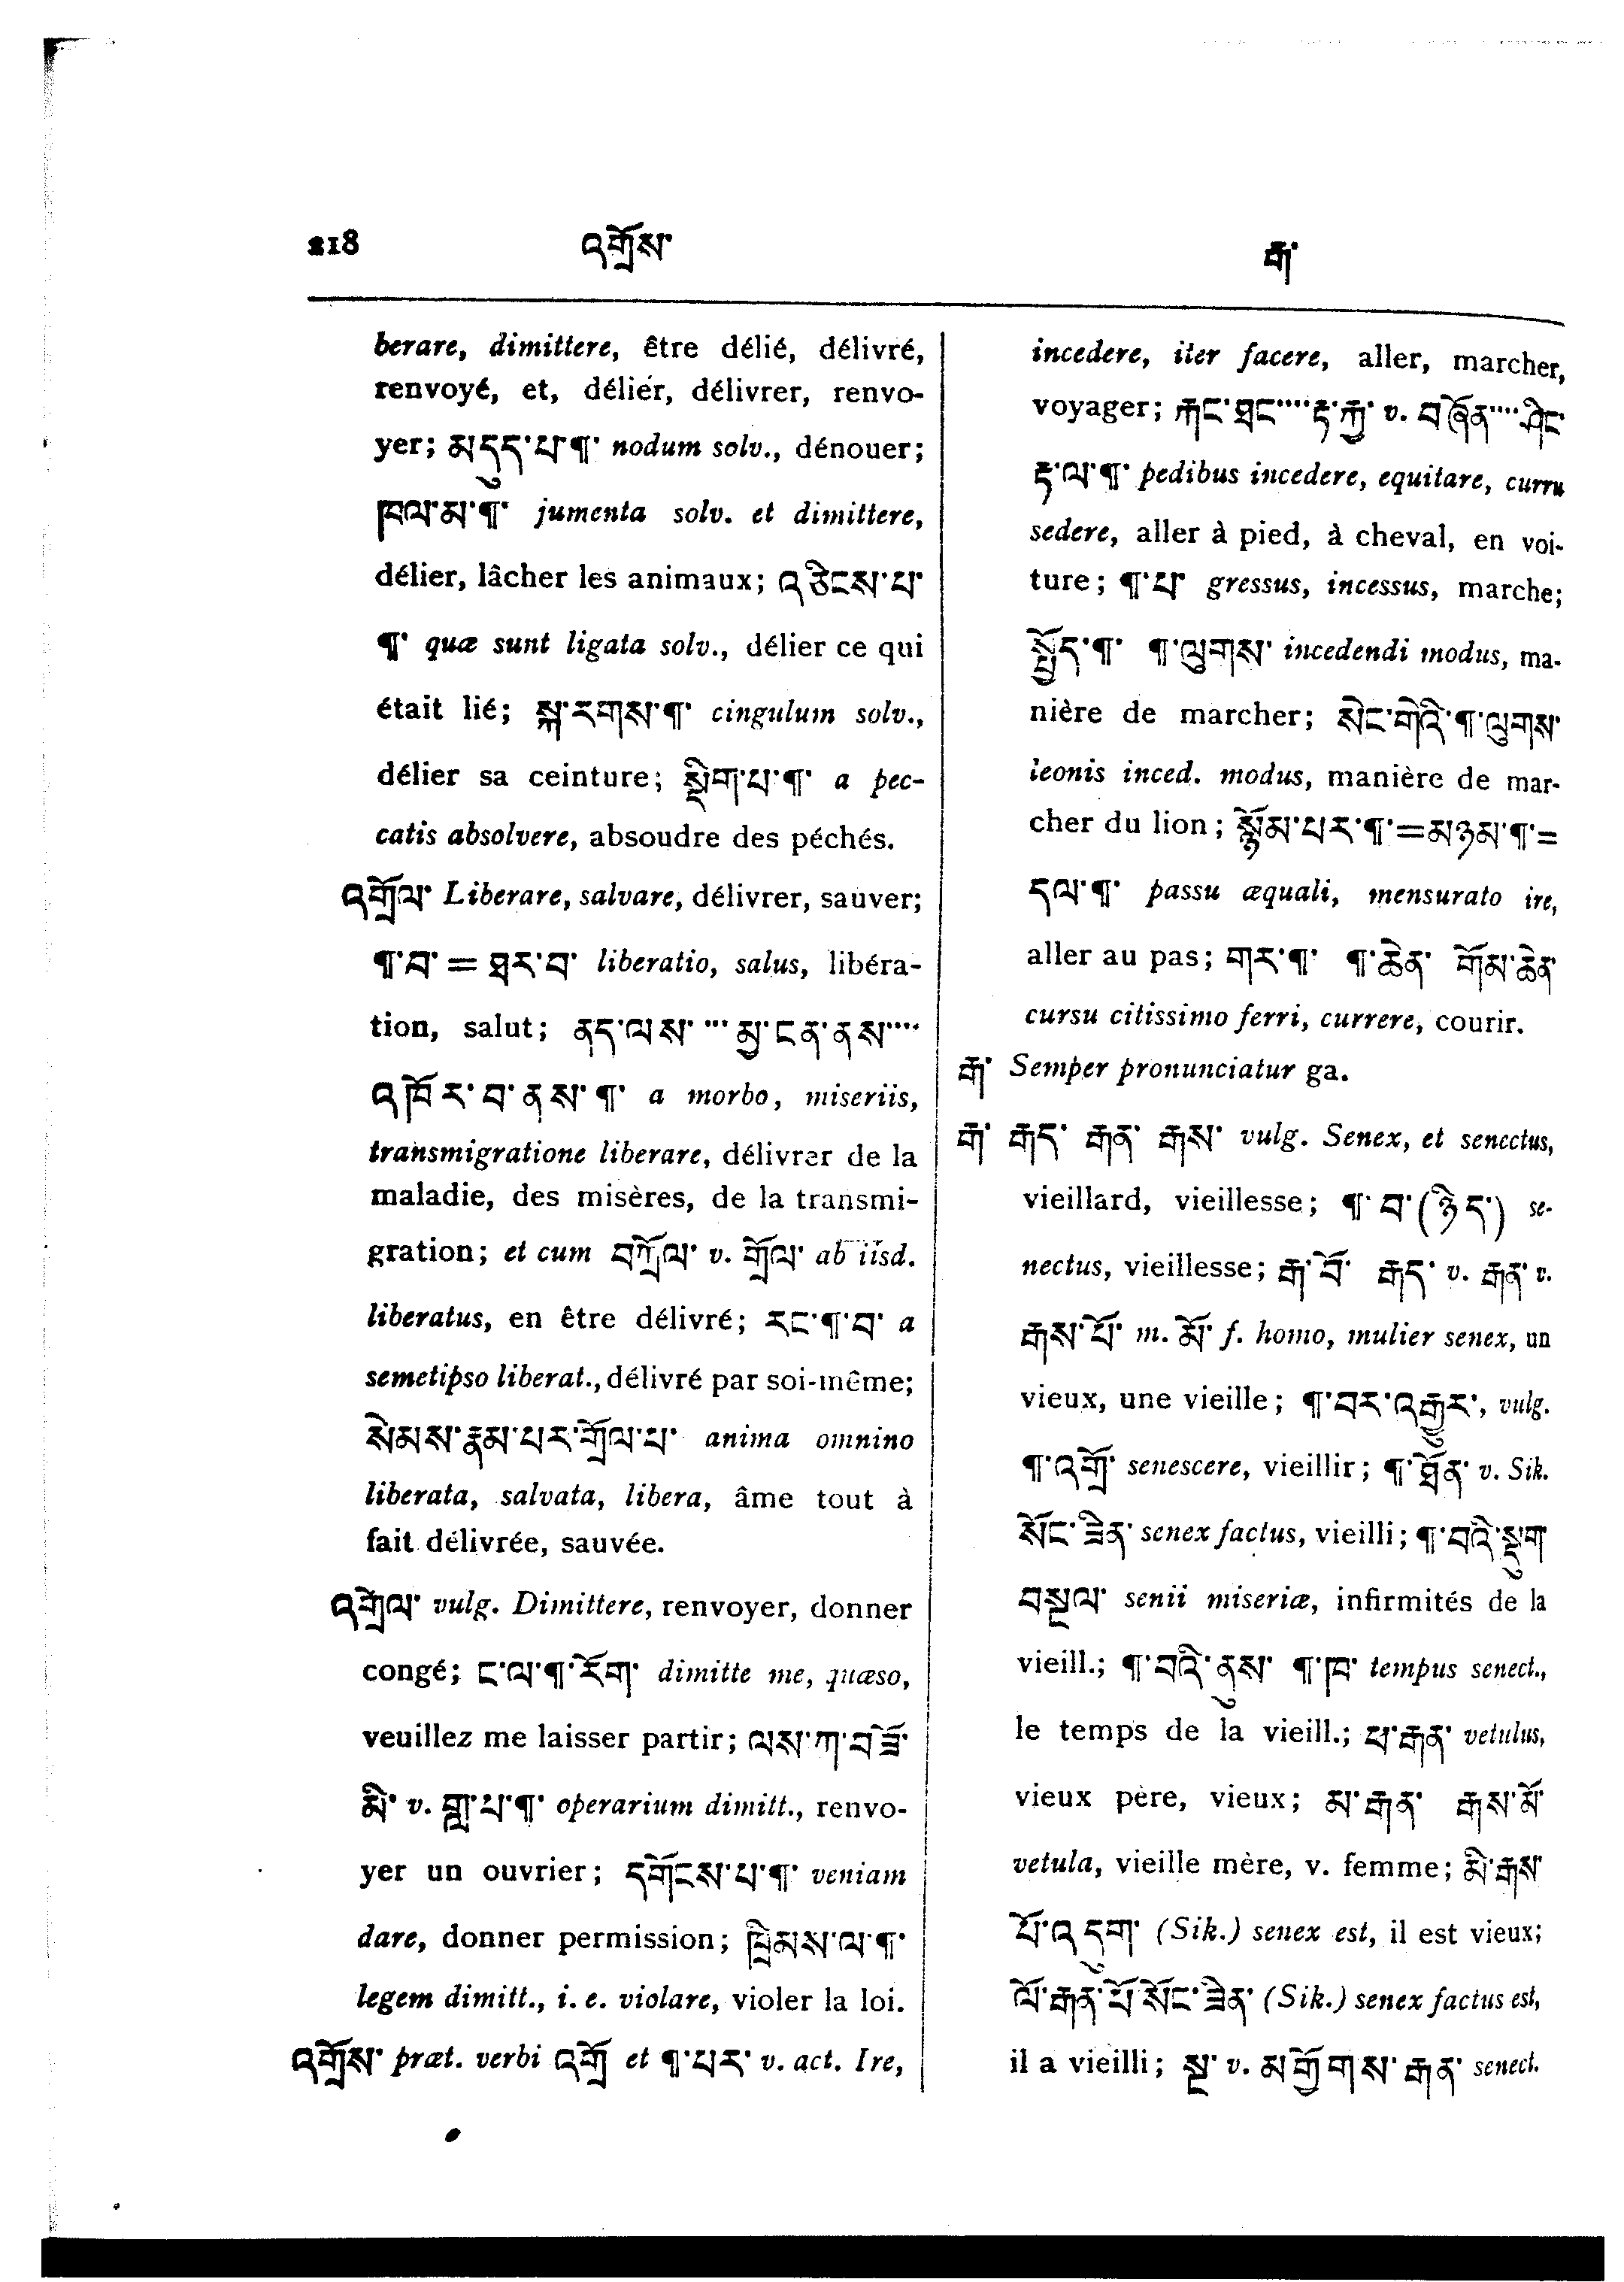 218 འགྲོས་ རྒ་
berare, dimittere, être délié, délivré,
renvoyé, et, délier, délivrer, renvo-
yer; མདུད་པ་¶་ nodum solv., dénouer;
ཁལ་མ་¶་ jumenta solv. et dimittere,
délier, lâcher les animaux; འཅིངས་པ་
¶་ quæ sunt ligata solv., délier ce qui
était lié; སྐ་རགས་¶་ cingulum solv.,
délier sa ceinture; སྡིག་པ་¶་ a pec-
catis absolvere, absoudre des péchés.
འགྲོལ་ Liberare, salvare, délivrer, sauver;
¶་བ་ = ཐར་བ་ liberatio, salus, libéra-
tion, salut; ནད་ལས་ ... མྱ་ངན་ནས་...
འཁོར་བ་ནས་¶་ a morbo, miseriis,
transmigratione liberare, délivrer de la
maladie, des misères, de la transmi-
gration; et cum བཀྲོལ་ v. གྲོལ་ ab iisd.
liberatus, en être délivré; རང་¶་བ་ a
semetipso liberat., délivré par soi-même;
སེམས་རྣམ་པར་གྲོལ་པ་ anima omnino
liberata, salvata, libera, âme tout à
fait délivrée, sauvée.
འགྲེལ་ vulg. Dimittere, renvoyer, donner
congé; ང་ལ་¶་རོག་ dimitte me, quæso,
veuillez me laisser partir; ལས་ཀ་བཟོ་
མི་ v. གླ་པ་¶་ operarium dimitt., renvo-
yer un ouvrier; དགོངས་པ་¶་ veniam
dare, donner permission; ཁྲིམས་ལ་¶་
legem dimitt., i. e. violare, violer la loi.
འགྲོས་ præt. verbi འགྲོ et ¶་པར་ v. act. Ire,
incedere, iter facere, aller, marcher,
voyager; རྐང་ཐང་....རྟ་རྐྱ་ v. བཞོན་....ཤིང་
རྟ་ལ་¶་ pedibus incedere, equitare, curru
sedere, aller à pied, à cheval, en voi-
ture; ¶་པ་ gressus, incessus, marche;
སྤྱོད་¶་ ¶་ལུགས་ incedendi modus, ma-
nière de marcher; སེང་གེའི་¶་ལུགས་
leonis inced. modus, manière de mar-
cher du lion; སྙོམ་པར་¶་=མཉམ་¶་=
དལ་¶་ passu æquali, mensurato ire,
aller au pas; གར་¶་ ¶་ཆེན་ གོམ་ཆེན་
cursu citissimo ferri, currere, courir.
རྒ་ Semper pronunciatur ga.
རྒ་ རྒད་ རྒན་ རྒས་ vulg. Senex, et senectus,
vieillard, vieillesse; ¶་བ་(ཉིད་) se-
nectus, vieillesse; རྒ་བོ་ རྒད་ v. རྒན་ v.
རྒས་པོ་ m. མོ་ f. homo, mulier senex, un
vieux, une vieille; ¶་བར་འགྱུར་, vulg.
¶་འགྲོ་ senescere, vieillir; ¶་ཐོན་ v. Sik.
སོང་ཟིན་ senex factus, vieilli; ¶་བའི་སྡུག
བསྔལ་ senii miseriæ, infirmités de la
vieill.; ¶་བའི་ནུས་ ¶་ཁ་ tempus senect.,
le temps de la vieill.; ཕ་རྒན་ vetulus,
vieux père, vieux; མ་རྒན་ རྒས་མོ་
vetula, vieille mère, v. femme; མི་རྒས་
པོ་འདུག་ (Sik.) senex est, il est vieux;
ལོ་རྒན་པོ་སོང་ཟིན་ (Sik.) senex factus est,
il a vieilli; སྔ་ v. མགྱོགས་རྒན་ senect.